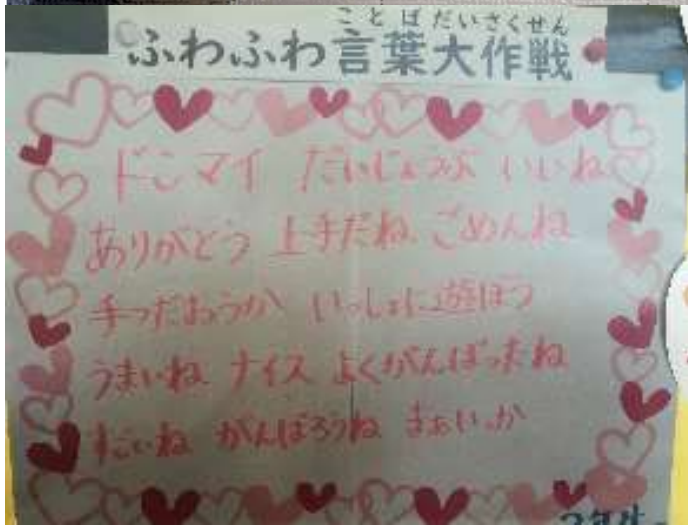 ことばだいさくせん
ふわふわ言葉大作戦
ドンマイ だいじょうぶ いいね
ありがとう 上手だね ごめんね
手つだおうか いっしょに遊ぼう
うまいね ナイス よくがんばったね
すごいね がんばろうね まあいっか